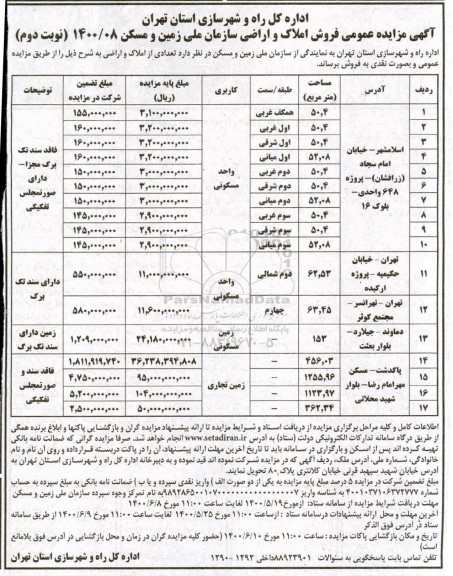 اداره کل راه و شهرسازی استان تهران
آگهی مزایده عمومی فروش املاک و اراضی سازمان ملی زمین و مسکن ۱۴۰۰/۰۸ (نوبت دوم)
اداره راه و شهرسازی استان تهران به نمایندگی از سازمان ملی زمین و مسکن در نظر دارد تعدادی از املاک و اراضی به شرح ذیل را از طریق مزایده
عمومی و بصورت نقدی به فروش برساند.
ردیف آدرس مساحت (متر مربع) طبقه/سمت کاربری مبلغ پایه مزایده (ریال) مبلغ تضمین شرکت در مزایده توضیحات
اسلامشهر - خیابان امام سجاد (زرافشان) - پروژه ۶۴۸ واحدی - بلوک ۱۶
واحد مسکونی
فاقد سند تک برگ مجزا - دارای صورتمجلس تفکیکی
۱ ۵۰,۴ همکف غربی ۳,۱۰۰,۰۰۰,۰۰۰ ۱۵۵,۰۰۰,۰۰۰
۲ ۵۰,۴ اول غربی ۳,۲۰۰,۰۰۰,۰۰۰ ۱۶۰,۰۰۰,۰۰۰
۳ ۵۰,۴ اول شرقی ۳,۲۰۰,۰۰۰,۰۰۰ ۱۶۰,۰۰۰,۰۰۰
۴ ۵۲,۰۸ اول میانی ۳,۲۰۰,۰۰۰,۰۰۰ ۱۶۰,۰۰۰,۰۰۰
۵ ۵۰,۴ دوم غربی ۳,۰۰۰,۰۰۰,۰۰۰ ۱۵۰,۰۰۰,۰۰۰
۶ ۵۰,۴ دوم شرقی ۳,۰۰۰,۰۰۰,۰۰۰ ۱۵۰,۰۰۰,۰۰۰
۷ ۵۲,۰۸ دوم میانی ۳,۰۰۰,۰۰۰,۰۰۰ ۱۵۰,۰۰۰,۰۰۰
۸ ۵۰,۴ سوم غربی ۲,۹۰۰,۰۰۰,۰۰۰ ۱۴۵,۰۰۰,۰۰۰
۹ ۵۰,۴ سوم شرقی ۲,۹۰۰,۰۰۰,۰۰۰ ۱۴۵,۰۰۰,۰۰۰
۱۰ ۵۲,۰۸ سوم میانی ۲,۹۰۰,۰۰۰,۰۰۰ ۱۴۵,۰۰۰,۰۰۰
۱۱ تهران - خیابان حکیمیه - پروژه ارکیده ۶۲,۵۳ دوم شمالی واحد مسکونی ۱۱,۰۰۰,۰۰۰,۰۰۰ ۵۵۰,۰۰۰,۰۰۰ دارای سند تک برگ
۱۲ تهران - تهرانسر - مجتمع کوثر ۶۳,۴۵ چهارم ۱۱,۶۰۰,۰۰۰,۰۰۰ ۵۸۰,۰۰۰,۰۰۰
۱۳ دماوند - جیلارد - بلوار بعثت ۱۵۳ - زمین مسکونی ۲۴,۱۸۰,۰۰۰,۰۰۰ ۱,۲۰۹,۰۰۰,۰۰۰ زمین دارای سند تک برگ
پاکدشت - مسکن مهرامام رضا - بلوار شهید محلاتی
زمین تجاری
فاقد سند و صورتمجلس تفکیکی
۱۴ ۴۵۶,۰۳ - ۳۶,۲۳۸,۳۹۴,۸۰۸ ۱,۸۱۱,۹۱۹,۷۴۰
۱۵ ۱۲۵۵,۹۶ - ۹۵,۰۰۰,۰۰۰,۰۰۰ ۴,۷۵۰,۰۰۰,۰۰۰
۱۶ ۱۱۲۳,۹۷ - ۱۰۴,۰۰۰,۰۰۰,۰۰۰ ۵,۲۰۰,۰۰۰,۰۰۰
۱۷ ۳۶۲,۳۴ - ۵۰,۰۰۰,۰۰۰,۰۰۰ ۲,۵۰۰,۰۰۰,۰۰۰
ParsNamadData
پایگاه اطلاع رسانی مناقصه و مزایده
اطلاعات کامل و کلیه مراحل برگزاری مزایده از دریافت اسناد و شرایط مزایده تا ارائه پیشنهاد مزایده گران و بازگشایی پاکتها و ابلاغ برنده همگی
از طریق درگاه سامانه تدارکات الکترونیکی دولت (ستاد) به آدرس www.setadiran.ir انجام خواهد شد. صرفا مزایده گرانی که ضمانت نامه بانکی
تهیه کرده اند پس از اسکن و بارگزاری در سامانه باید تا تاریخ آخرین مهلت ارائه پیشنهاد، آن را در پاکت دربسته قرارداده و روی آن نام و نام
خانوادگی، شماره ملی، آدرس ملک، ردیف آگهی که در مزایده شرکت نموده اند قید نموده و به دبیرخانه اداره کل راه و شهرسازی استان تهران به
آدرس خیابان شهید سپهبد قرنی خیابان کلانتری پلاک ۸۰ تحویل نمایند.
مبلغ تضمین شرکت در مزایده ۵ درصد مبلغ پایه مزایده به یکی از دو صورت الف) واریز نقدی سپرده و یا ب) ضمانت نامه بانکی به مبلغ سپرده به حساب
مهلت دریافت شرایط مزایده از سامانه ستاد: ازمورخ ۱۴۰۰/۵/۱۹ لغایت ساعت ۱۱:۰۰ مورخ ۱۴۰۰/۶/۸
آخرین مهلت و محل ارائه پیشنهادات درسامانه ستاد: ازساعت ۱۱:۰۰ مورخ ۱۴۰۰/۵/۲۵ لغایت ساعت ۱۱:۰۰ مورخ ۱۴۰۰/۶/۹ از طریق سامانه
ستاد در آدرس فوق الذکر
تاریخ و مکان بازگشایی پاکات مزایده: ساعت ۱۱:۰۰ مورخ ۱۴۰۰/۶/۱۰ (حضور کلیه مزایده گران در زمان و محل بازگشایی در آدرس فوق بلامانع
است)
تلفن تماس بابت پاسخگویی به سئوالات ۸۸۹۲۳۹۰۱ داخلی ۱۲۹۲ - ۱۲۹۰
اداره کل راه و شهرسازی استان تهران